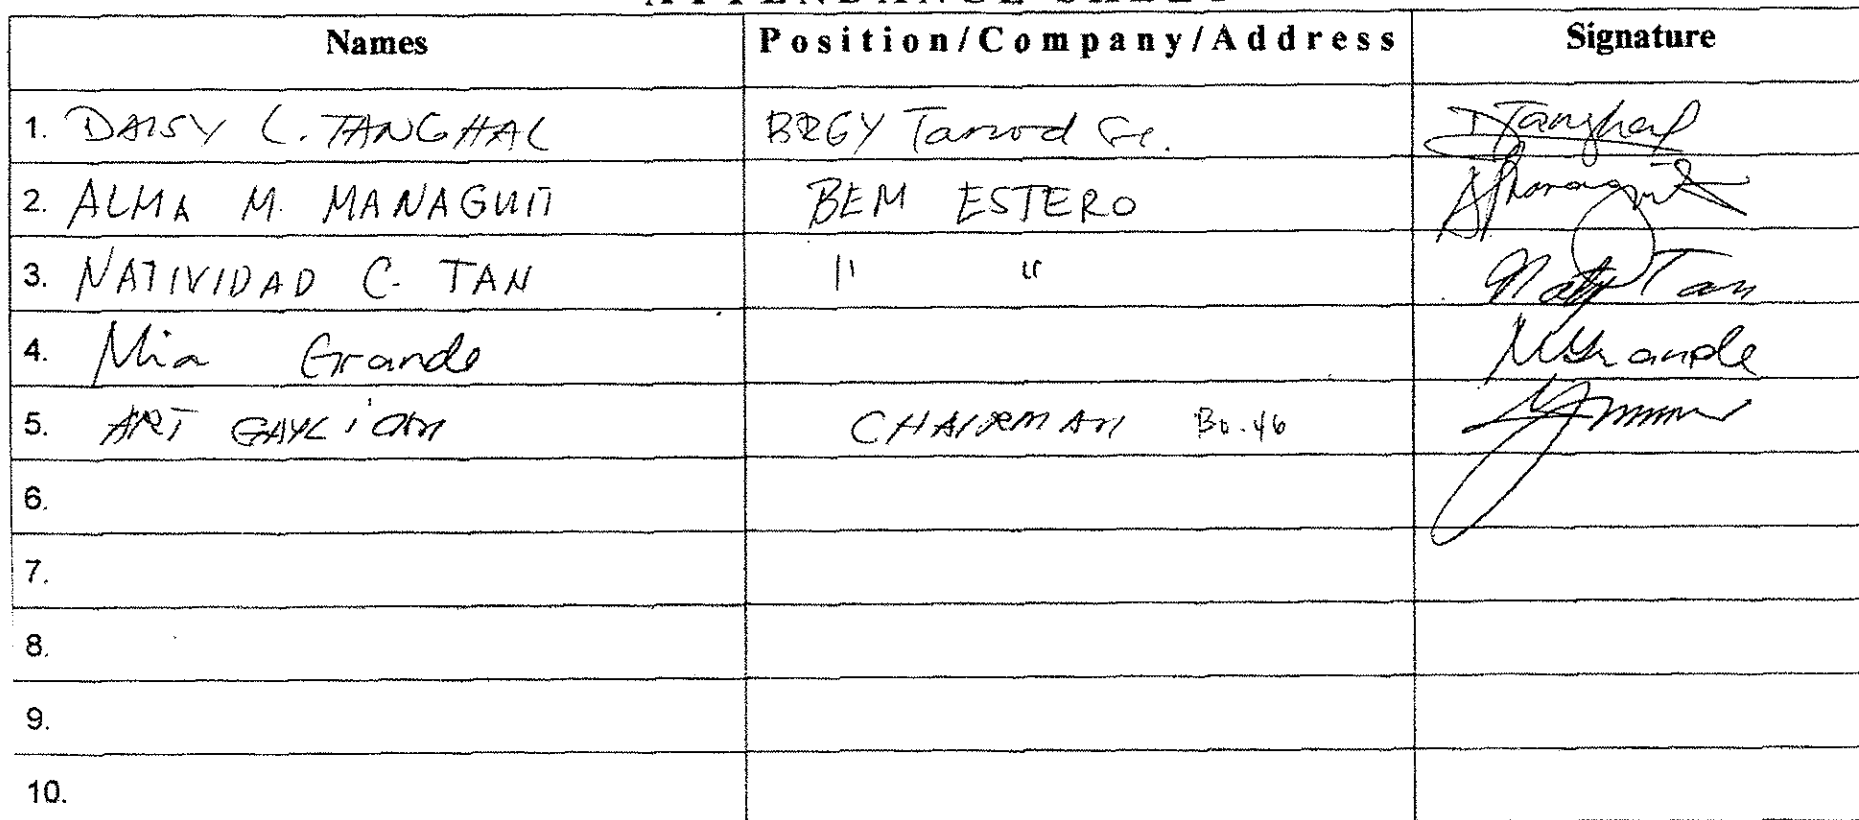 ATTENDANCE SHEET
Names Position/Company/Address Signature
1. DAISY C. TANGHAL BRGY Tanod DTanghal
2. ALMA M. MANAGUIT BEM ESTERO AManaguit
3. NATIVIDAD C. TAN " " Naty Tan
4. Mia Grande MGrande
5. ART CHAIRMAN Bo. 46
6.
7.
8.
9.
10.